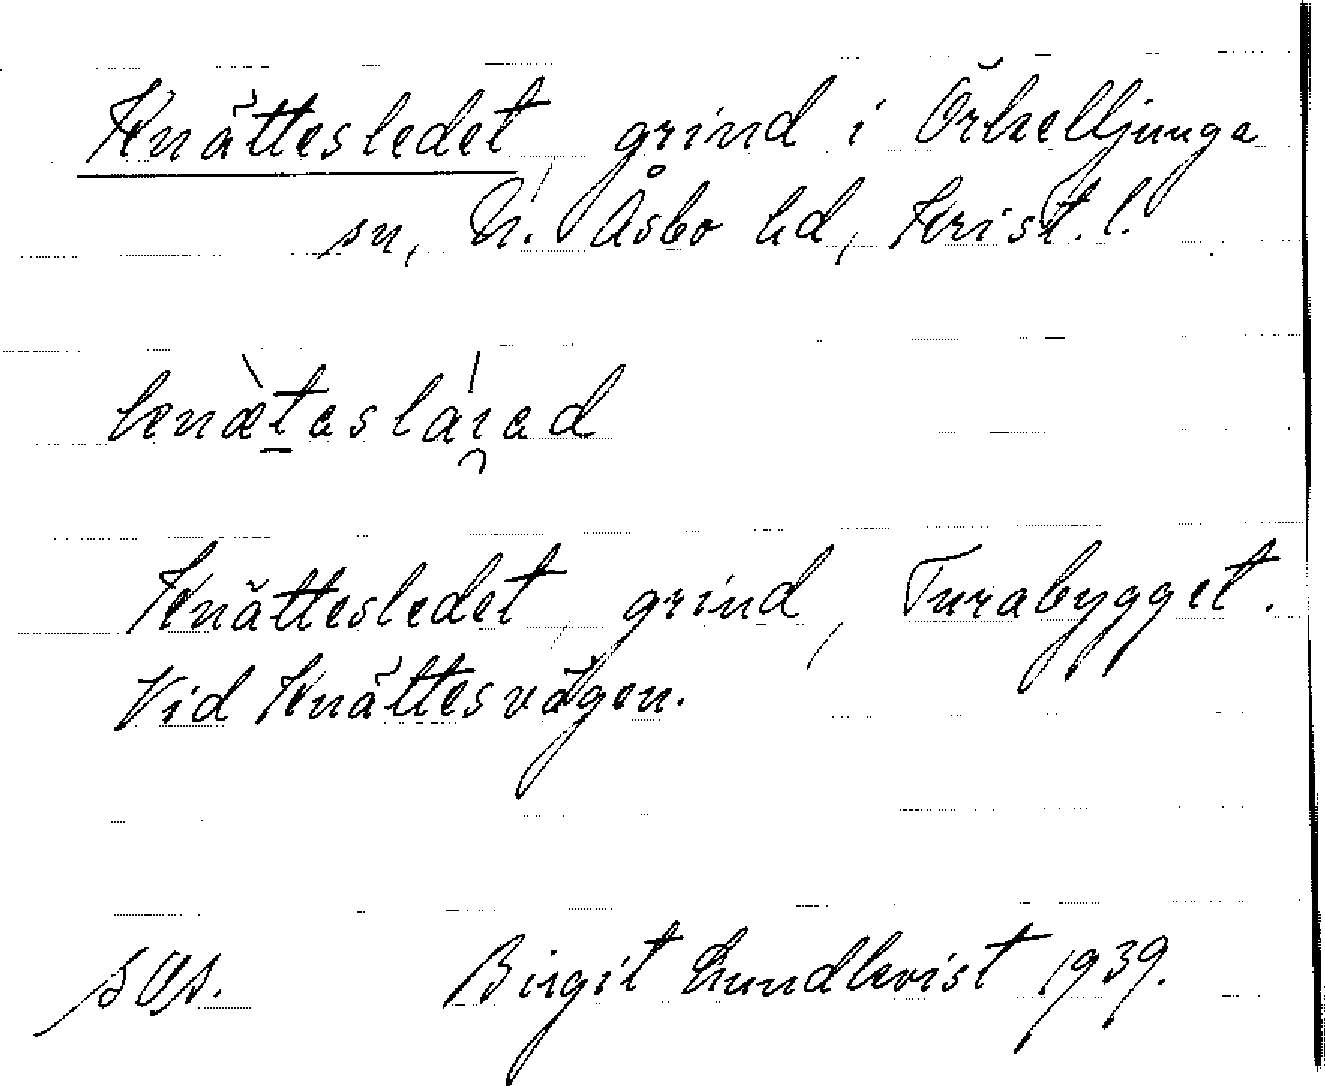 Knättesledet, grind i Örkelljunga
sn, N. Åsbo hd, Krist. l.
knæ̀tasláı̯ad
Knättesledet, grind, Turabygget.
Vid Knättesvägen.
Birgit Lundkvist 1939.